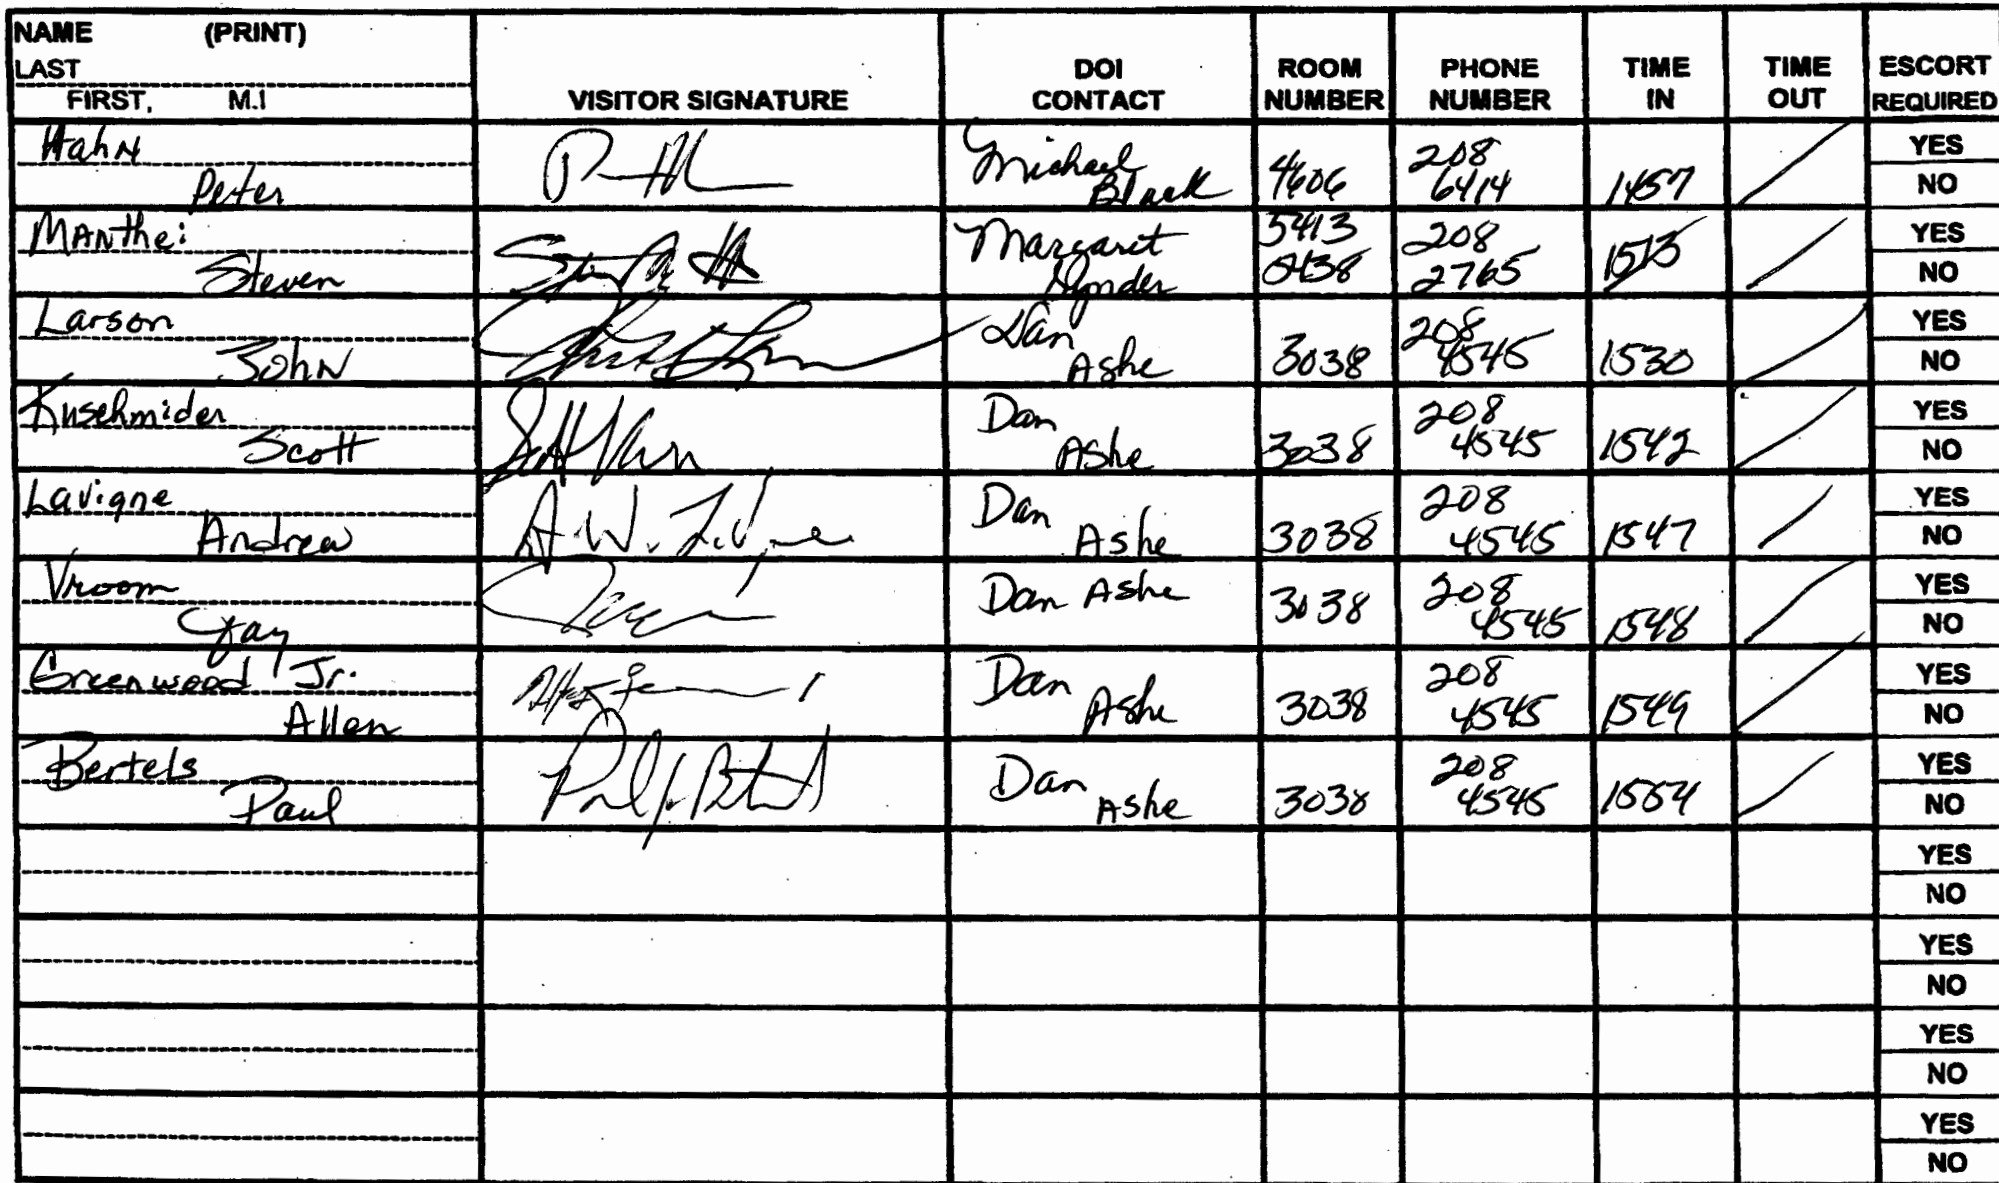 NAME (PRINT)
LAST
FIRST, M.I
VISITOR SIGNATURE
DOI
CONTACT
ROOM
NUMBER
PHONE
NUMBER
TIME
IN
TIME
OUT
ESCORT
REQUIRED
Hahn
Peter
Michael
Black
4606
208
6414
1457
YES
NO
Manthei
Steven
Margaret
5413
208
2765
1513
YES
NO
Larson
John
Dan
Ashe
3038
208
4545
1530
YES
NO
Kuschmider
Scott
Dan
Ashe
3038
208
4545
1542
YES
NO
Lavigne
Andrew
A.W.
Dan
Ashe
3038
208
4545
1547
YES
NO
Vroom
Jay
Dan Ashe
3038
208
4545
1548
YES
NO
Greenwood Jr.
Allen
Dan
Ashe
3038
208
4545
1549
YES
NO
Bertels
Paul
Dan
Ashe
3038
208
4545
1554
YES
NO
YES
NO
YES
NO
YES
NO
YES
NO